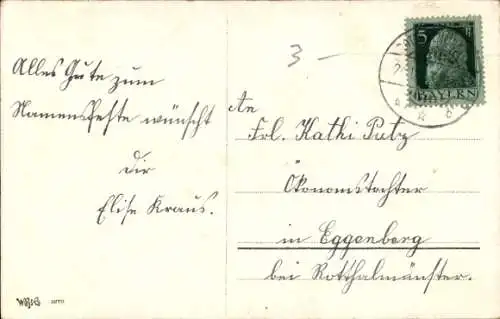 Alles Gute zum
Namensfeste wünscht
dir
Elise Kraus.
3 –
An
Frl. Kathi Putz
Ökonomstochter
in Eggenberg
bei Rotthalmünster.
5 Pf
BAYERN